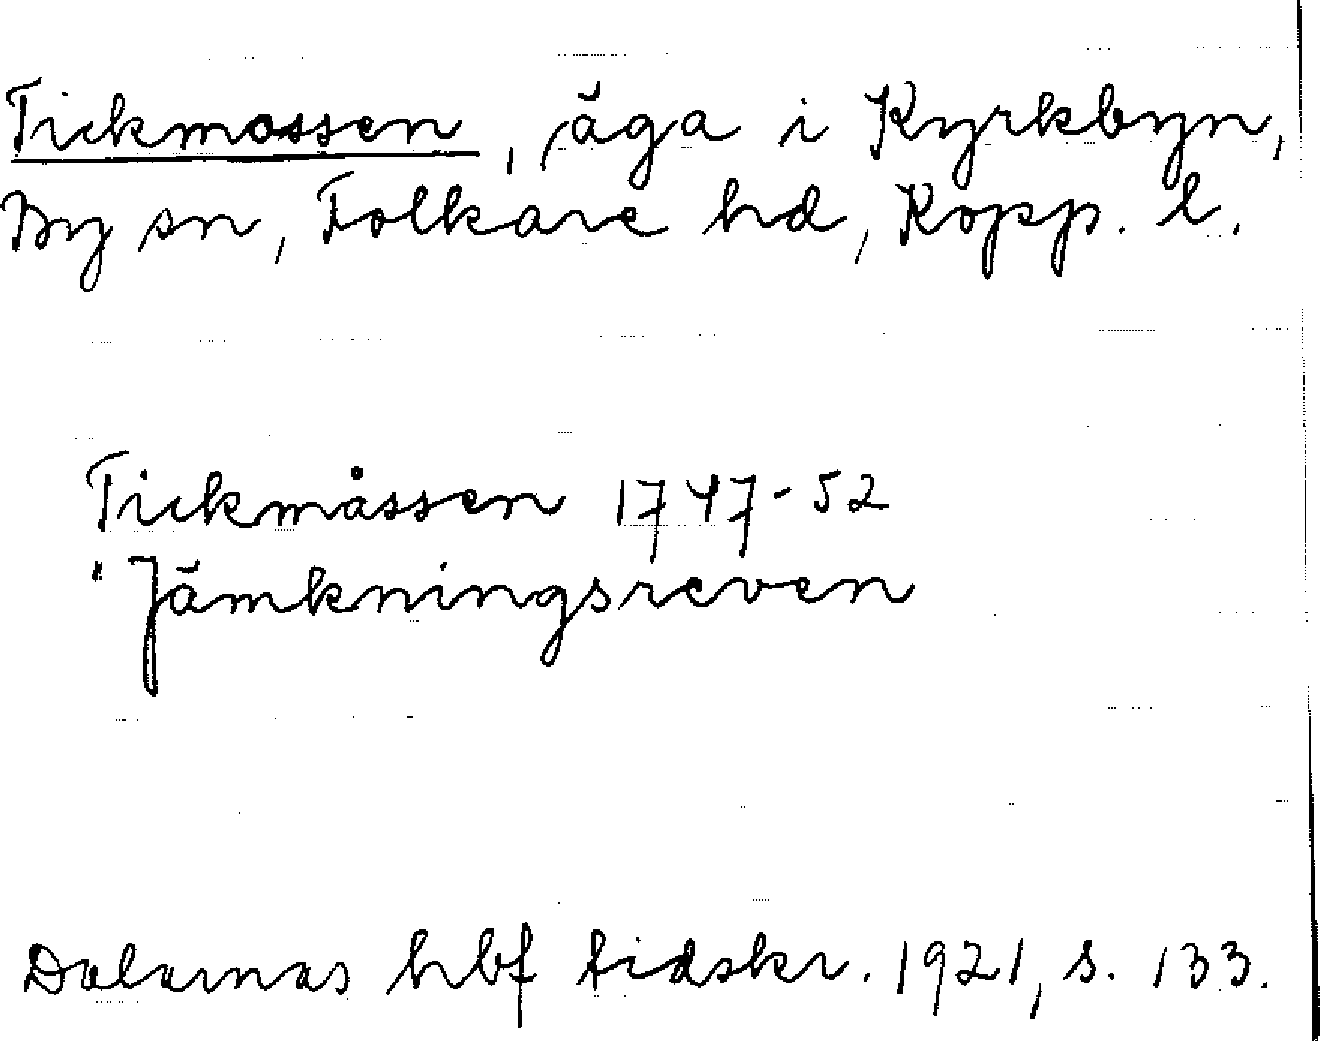 Tickmossen, äga i Kyrkbyn,
By sn, Folkare hd, Kopp. l.
Tickmåssen 1747-52
" Jämkningsreven
Dalarnas hbf tidskr. 1921, s. 133.